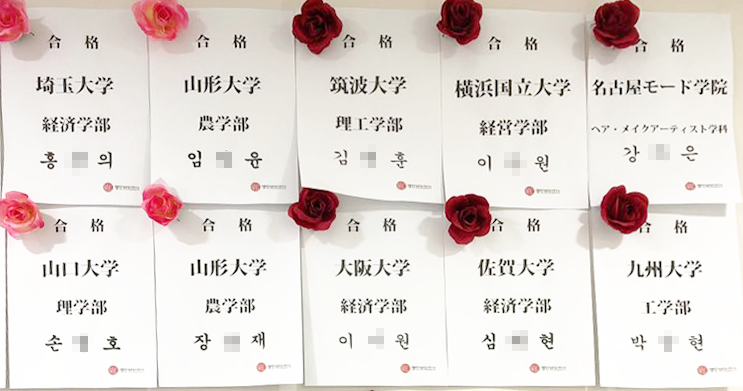 合格
埼玉大学
経済学部
홍 의
合格
山形大学
農学部
임 윤
合格
筑波大学
理工学部
김 훈
合格
横浜国立大学
経営学部
이 원
合格
名古屋モード学院
ヘア・メイクアーティスト学科
강 은
合格
山口大学
理学部
손 호
合格
山形大学
農学部
장 재
合格
大阪大学
経済学部
이 원
合格
佐賀大学
経済学部
심 현
合格
九州大学
工学部
박 현